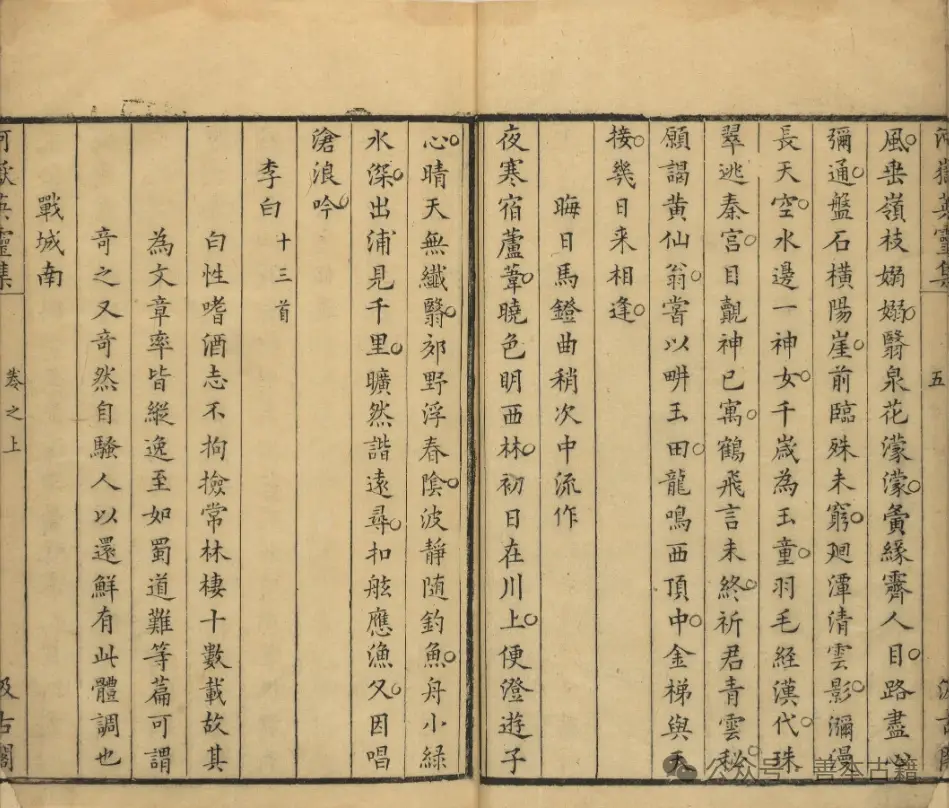 河嶽英靈集 五
風垂嶺枝嫋嫋翳泉花濛濛夤緣霽人目路盡心
彌通盤石橫陽崖前臨殊未窮廻潭清雲影瀰漫
長天空水邊一神女千歲為玉童羽毛經漢代珠
翠逃秦宮目覿神已寓鶴飛言未終祈君青雲秘
願謁黄仙翁嘗以畊玉田龍鳴西頂中金梯與天
接幾日來相逢
晦日馬鐙曲稍次中流作
夜寒宿蘆葦曉色明西林初日在川上便澄遊子
心晴天無纖翳郊野浮春陰波靜随釣魚舟小綠
水深出浦見千里曠然諧遠尋扣舷應漁父因唱
滄浪吟
李白 十三首
白性嗜酒志不拘撿常林棲十數載故其
為文章率皆縱逸至如蜀道難等篇可謂
竒之又竒然自騷人以還鮮有此體調也
戰城南
河嶽英靈集 卷之上 汲古閣
公众号·善本古籍